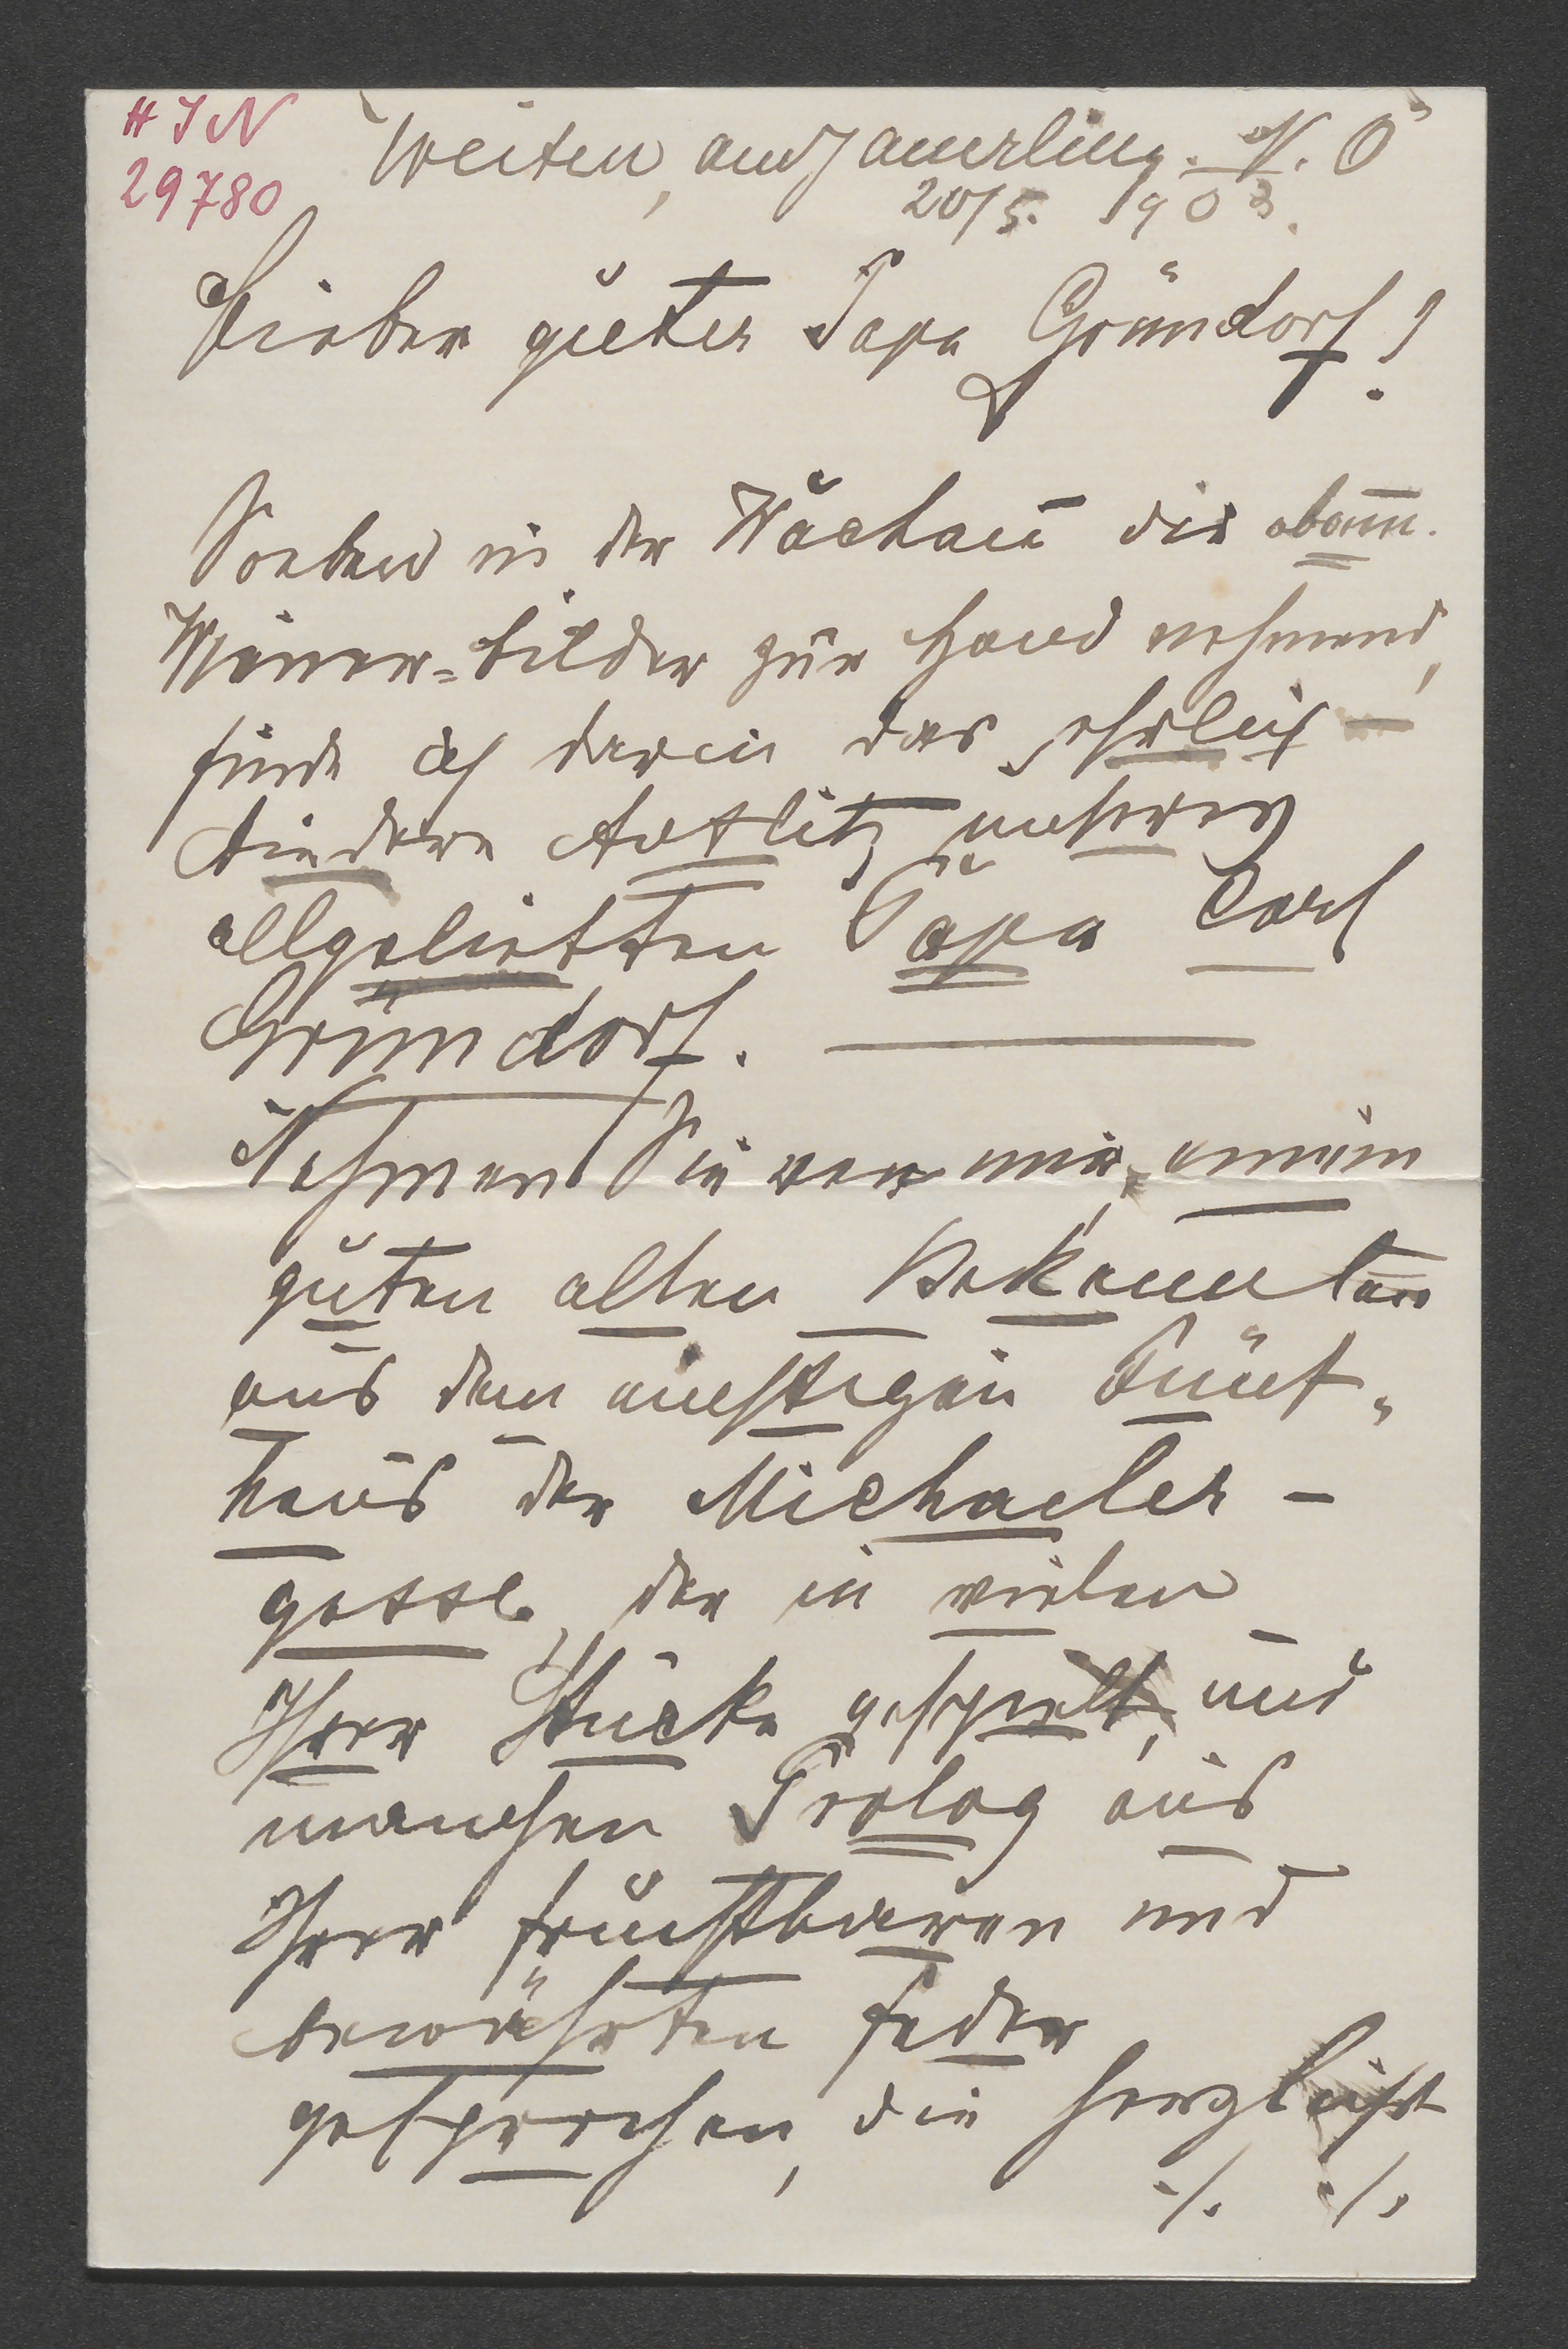 HIN
29780
Weiten, am Jauerling. N. Ö
20/5. 1903.
Lieber guter Papa Gründorf!
Soeben in der Wachau die
Wiener-bilder zur Hand nehmend,
finde ich darin das ehrlich-
biedere Antlitz unseres
allgeliebten Papa Carl
Gründorf.
Nehmen Sie von mir, einem
guten alten Bekannten
aus dem einstigen Fünf-
haus der Michaeler-
gasse, der in vielen
Ihrer Stücke gespielt, und
manchen Prolog aus
Ihrer fruchtbaren und
bewährten Feder
gesprochen, die herzlichst
./. ./.